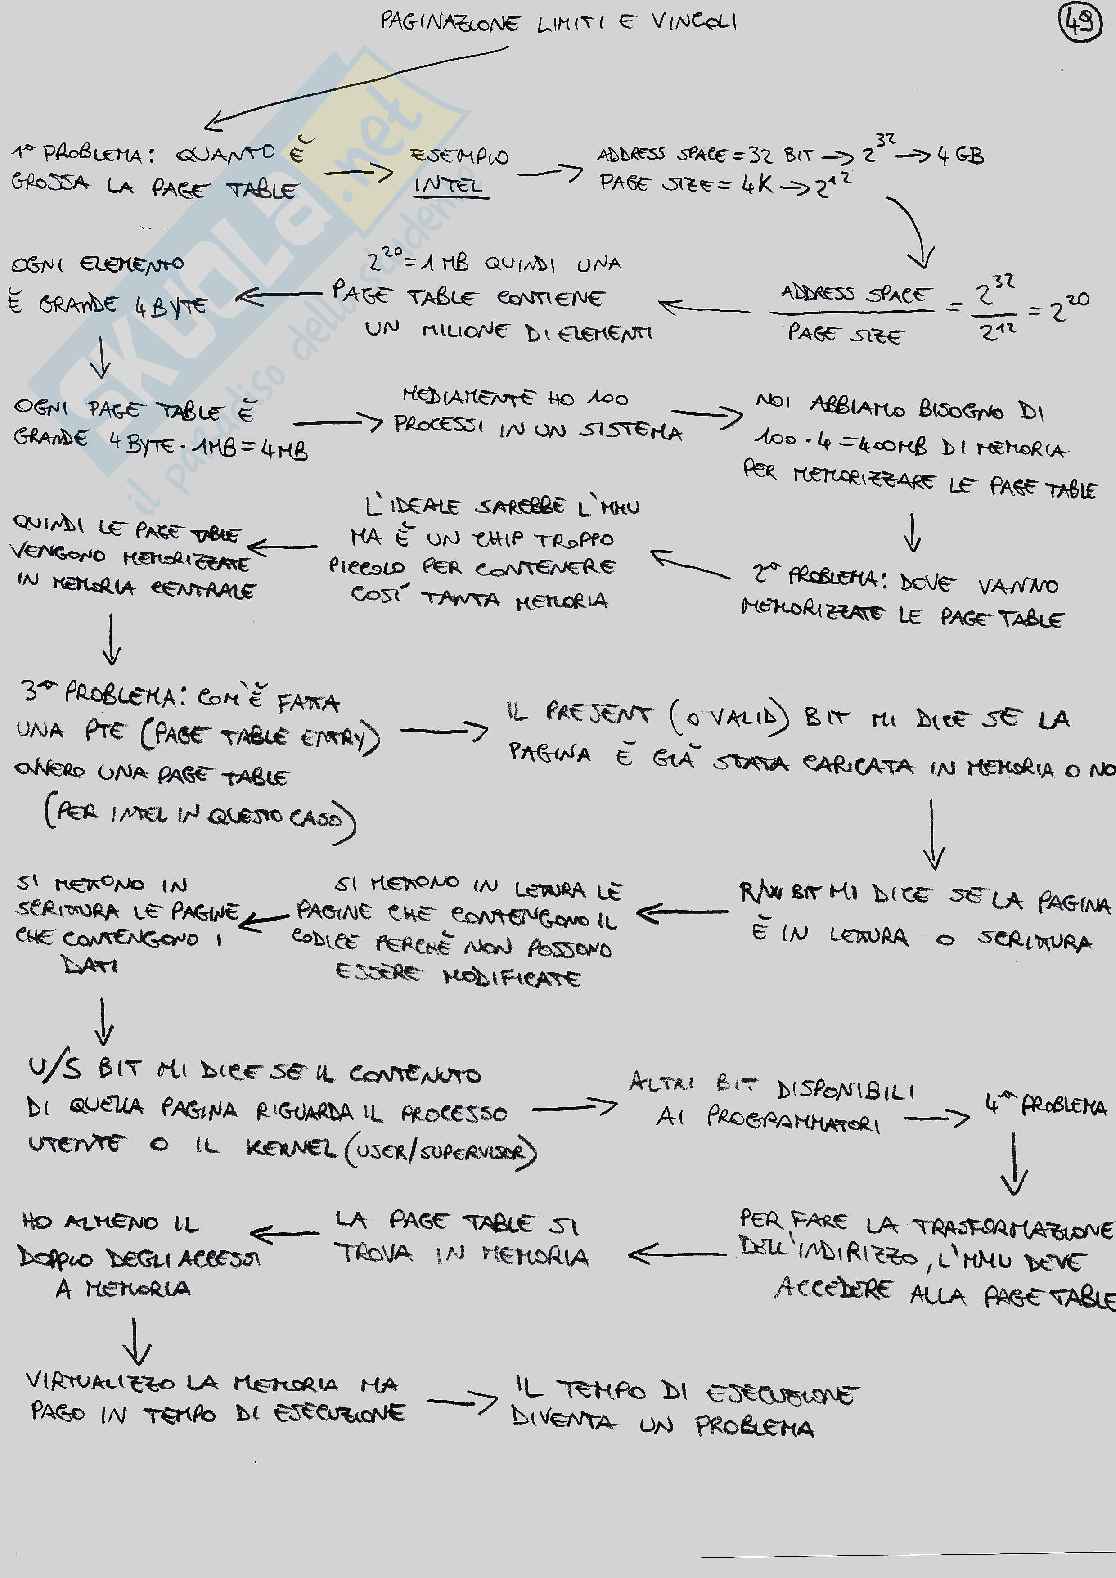 PAGINAZIONE LIMITI E VINCOLI
49
1° PROBLEMA: QUANTO È
GROSSA LA PAGE TABLE
ESEMPIO
INTEL
ADDRESS SPACE = 32 BIT → 2^32 → 4 GB
PAGE SIZE = 4K → 2^12
ADDRESS SPACE / PAGE SIZE = 2^32 / 2^12 = 2^20
2^20 = 1 MB QUINDI UNA
PAGE TABLE CONTIENE
UN MILIONE DI ELEMENTI
OGNI ELEMENTO
È GRANDE 4 BYTE
OGNI PAGE TABLE È
GRANDE 4 BYTE · 1MB = 4 MB
MEDIAMENTE HO 100
PROCESSI IN UN SISTEMA
NOI ABBIAMO BISOGNO DI
100 · 4 = 400 MB DI MEMORIA
PER MEMORIZZARE LE PAGE TABLE
2° PROBLEMA: DOVE VANNO
MEMORIZZATE LE PAGE TABLE
L'IDEALE SAREBBE L'MMU
MA È UN CHIP TROPPO
PICCOLO PER CONTENERE
COSÌ TANTA MEMORIA
QUINDI LE PAGE TABLE
VENGONO MEMORIZZATE
IN MEMORIA CENTRALE
3° PROBLEMA: COM'È FATTA
UNA PTE (PAGE TABLE ENTRY)
OVVERO UNA PAGE TABLE
(PER INTEL IN QUESTO CASO)
IL PRESENT (O VALID) BIT MI DICE SE LA
PAGINA È GIÀ STATA CARICATA IN MEMORIA O NO
R/W BIT MI DICE SE LA PAGINA
È IN LETTURA O SCRITTURA
SI METTONO IN LETTURA LE
PAGINE CHE CONTENGONO IL
CODICE PERCHÈ NON POSSONO
ESSERE MODIFICATE
SI METTONO IN
SCRITTURA LE PAGINE
CHE CONTENGONO I
DATI
U/S BIT MI DICE SE IL CONTENUTO
DI QUELLA PAGINA RIGUARDA IL PROCESSO
UTENTE O IL KERNEL (USER/SUPERVISOR)
ALTRI BIT DISPONIBILI
AI PROGRAMMATORI
4° PROBLEMA
PER FARE LA TRASFORMAZIONE
DELL'INDIRIZZO, L'MMU DEVE
ACCEDERE ALLA PAGE TABLE
LA PAGE TABLE SI
TROVA IN MEMORIA
HO ALMENO IL
DOPPIO DEGLI ACCESSI
A MEMORIA
VIRTUALIZZO LA MEMORIA MA
PAGO IN TEMPO DI ESECUZIONE
IL TEMPO DI ESECUZIONE
DIVENTA UN PROBLEMA
SKUOLA.net
il paradiso dello studente